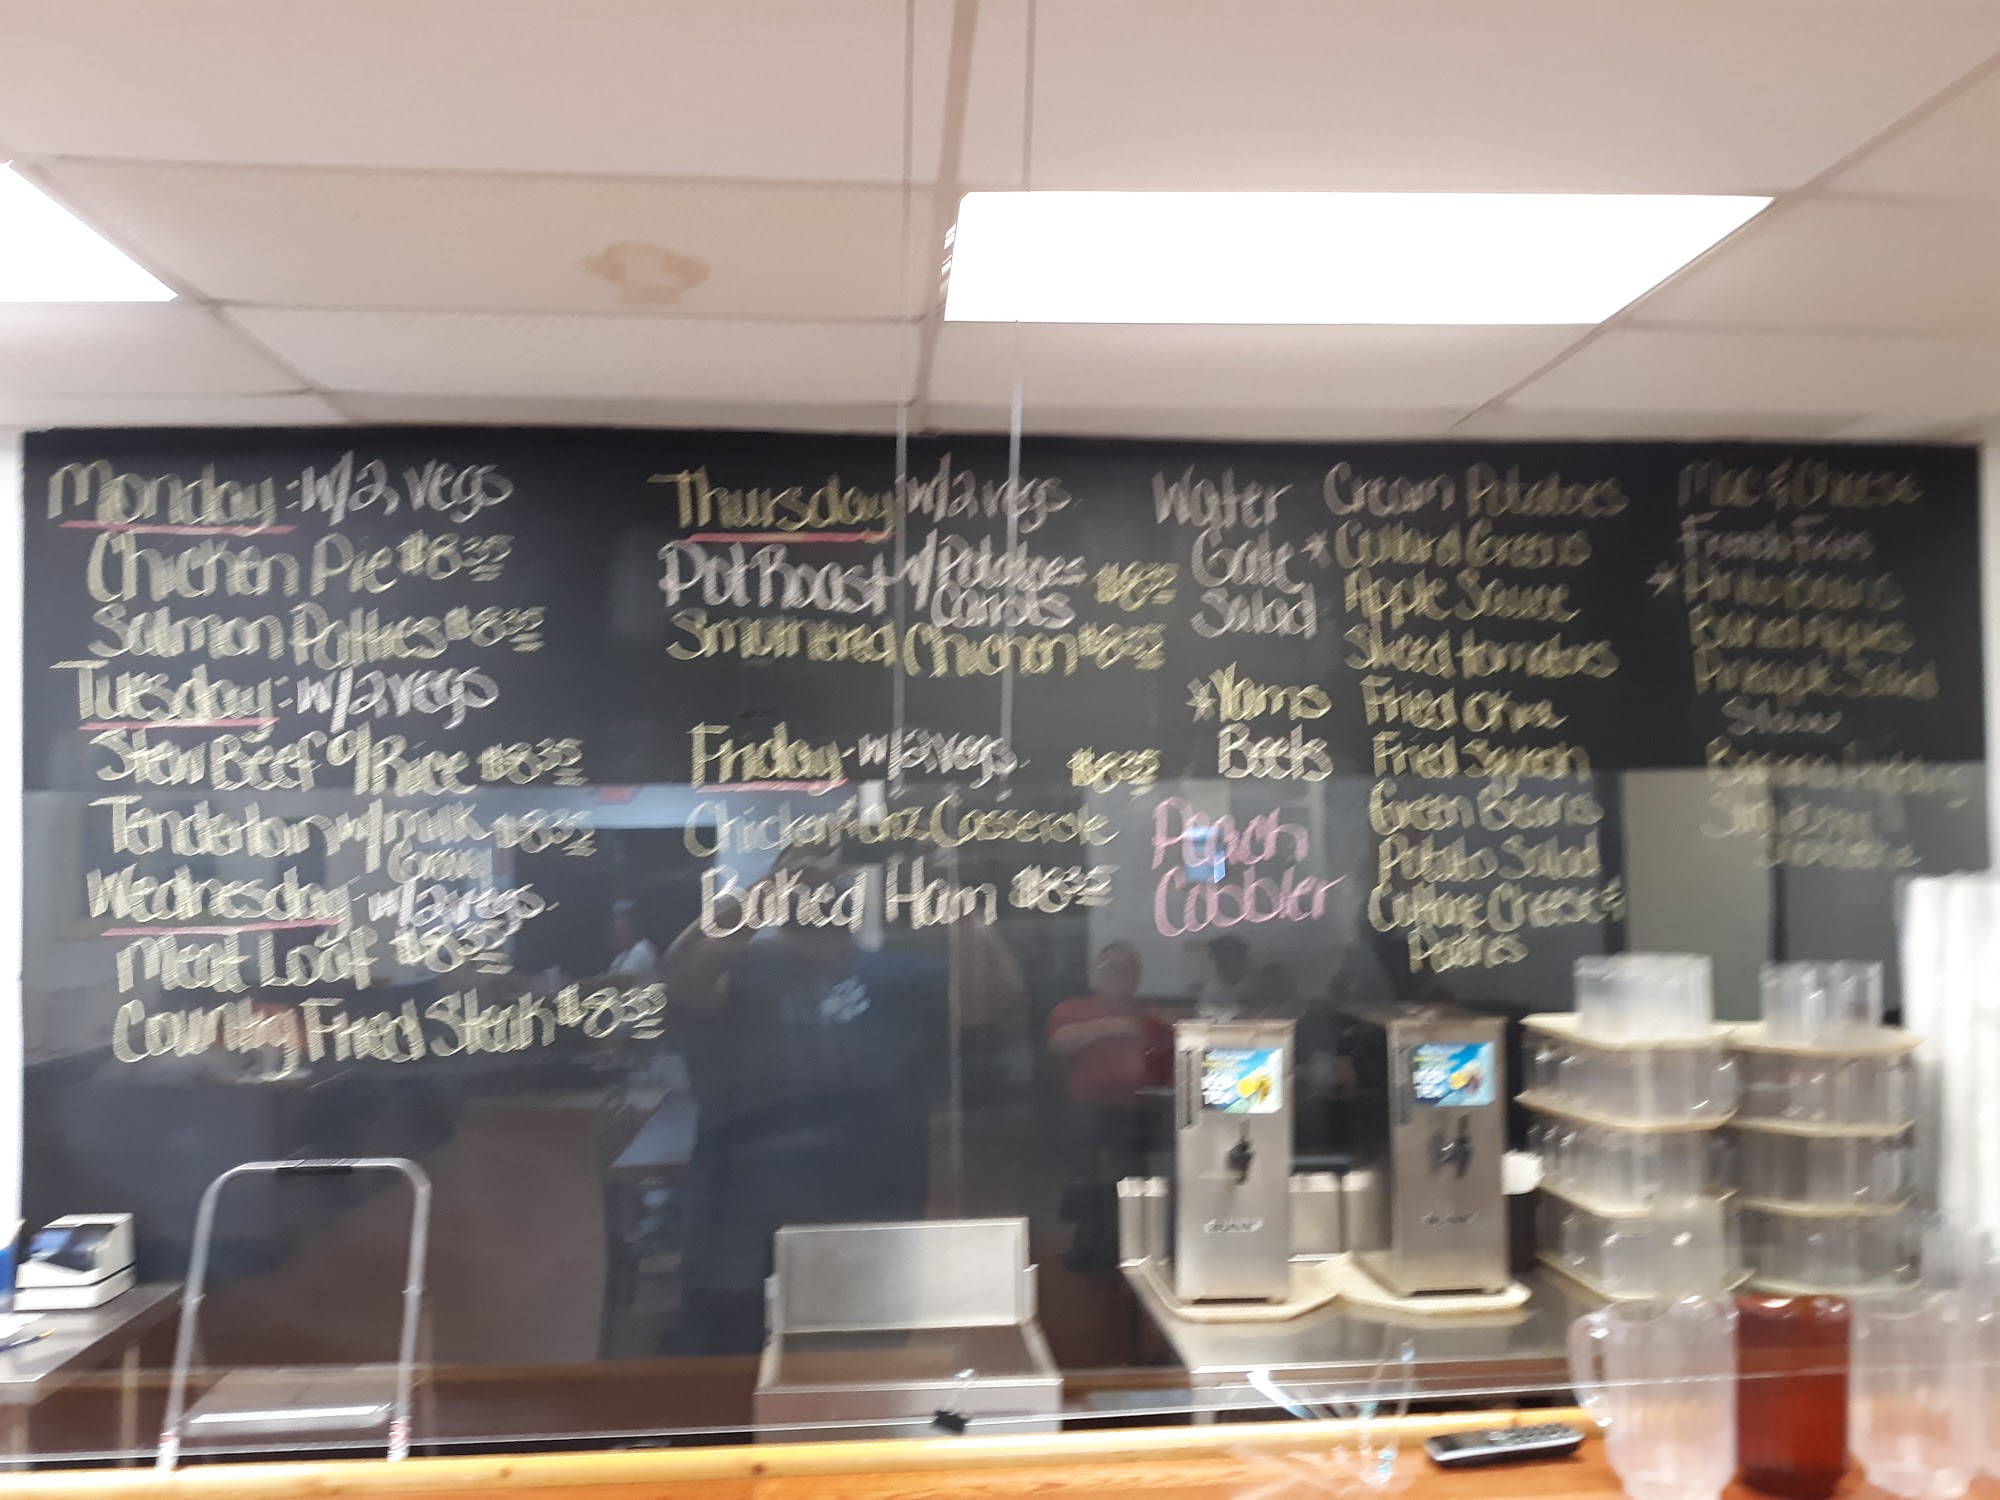 Monday: w/2 vegs
Chicken Pie $8.35
Salmon Patties $8.35
Tuesday: w/2 vegs
Stew Beef o/Rice $8.35
Tenderloin w/milk $8.35
Gravy
Wednesday w/2 vegs.
Meat Loaf $8.35
Country Fried Steak $8.35
Thursday w/2 vegs.
Pot Roast w/Potatoes $8.35
Carrots
Smothered Chicken $8.35
Friday w/2 vegs. $8.35
Chicken Casserole
Baked Ham $8.35
Water
Gate
Salad
*Yams
Beets
Peach
Cobbler
Cream Potatoes
*Collard Greens
Apple Sauce
Sliced tomatoes
Fried Okra
Fried Squash
Green Beans
Potato Salad
Cottage Cheese &
Peaches
Mac & Cheese
French Fries
*Pinto Beans
Baked Apples
Pineapple Salad
Slaw
Banana Pudding
Strawberry
ICED
TEA
ICED
TEA
BUNN
BUNN